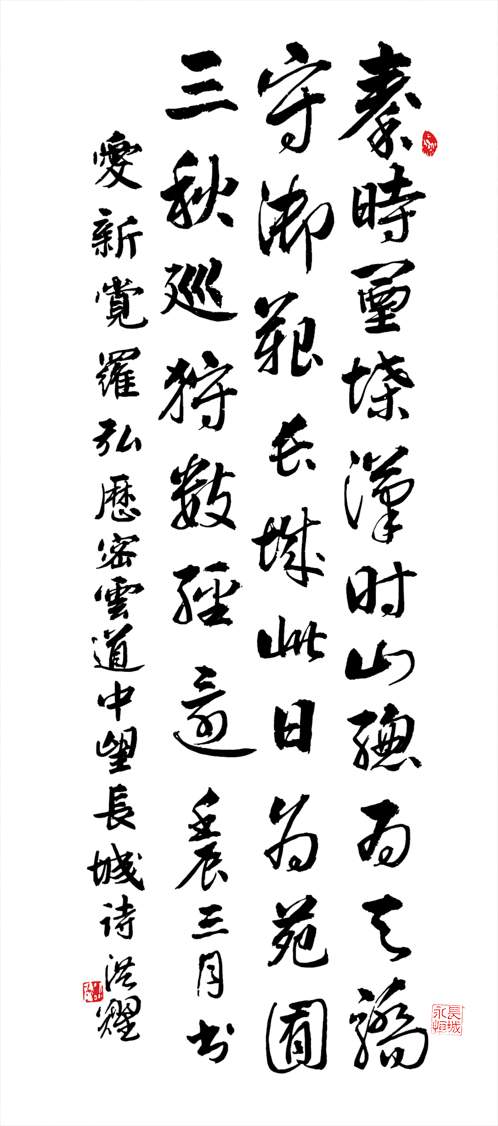 秦時堊堞漢时山總为天驕
守御艱长城此日为苑囿
三秋巡狩數經還壬辰三月书
愛新覺羅弘歷密雲道中望長城诗洪耀
長城永恒